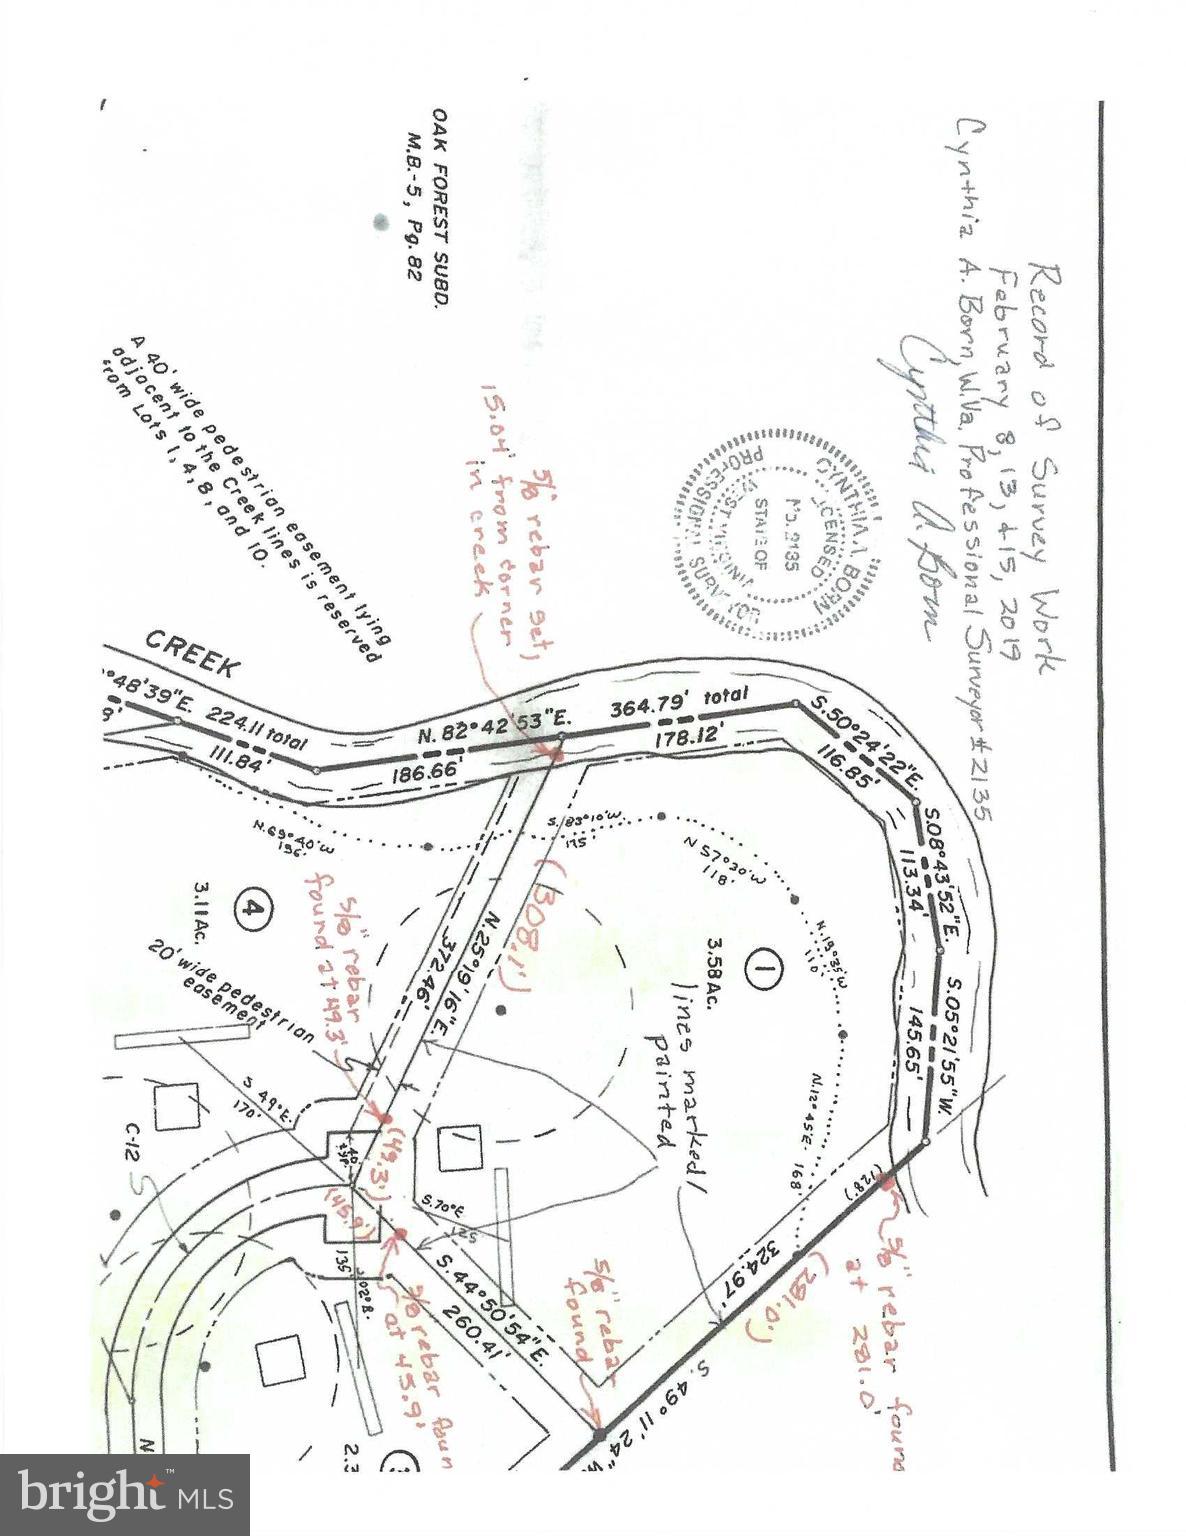 Record of Survey Work
February 8, 13, + 15, 2019
Cynthia A. Born, W.Va. Professional Surveyor # 2135
Cynthia A. Born
CYNTHIA A BORN
LICENSED
No. 2135
STATE OF
WEST VIRGINIA
PROFESSIONAL SURVEYOR
OAK FOREST SUBD.
M.B.-5, Pg. 82
A 40' wide pedestrian easement lying
adjacent to the Creek lines is reserved
from Lots 1, 4, 8, and 10.
5/8" rebar set,
15.04' from corner
in creek
CREEK
°48'39"E.
224.11 total
111.84'
N. 82°42'53"E.
364.79' total
186.66'
178.12'
S. 50°24'22"E.
116.85'
S. 08°43'52"E.
113.34'
S. 05°21'55"W.
145.65'
N. 69°40'W
196'
S. 83°10'W
175'
N 57°30'W
118'
N. 19°35'W
110'
N. 12°45'E
168'
1
3.58 Ac.
4
3.11 Ac.
(308.1')
N. 25°19'16"E.
372.46'
lines marked/
painted
5/8" rebar
found at 49.3'
20' wide pedestrian
easement
(49.3')
(45.9')
S 49°E.
170'
C-12
40'
S. 70°E
125
135'
S. 44°50'54"E.
260.41'
5/8" rebar
found
5/8 rebar foun
at 45.9'
(128')
324.97'
(281.0')
5/8" rebar found
at 281.0'
S. 49°11'24"
2.3
N
bright™ MLS